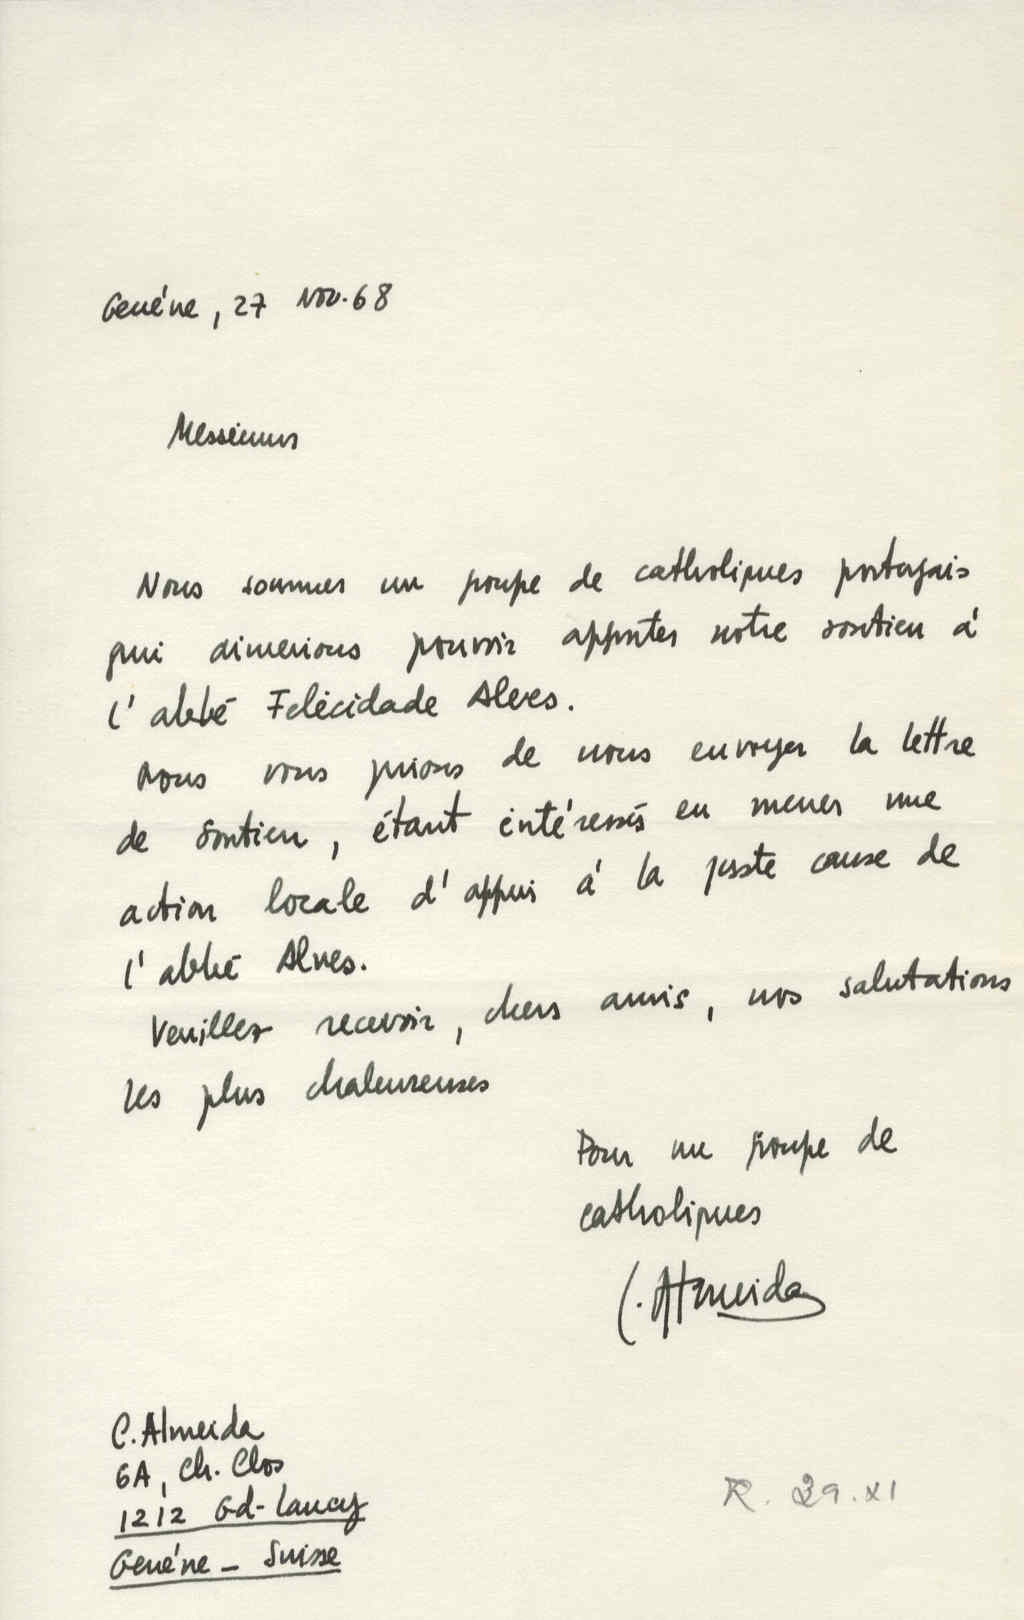 Genéve, 27 Nov. 68
Messieurs
Nous sommes un groupe de catholiques portugais
qui aimerions pouvoir apporter notre soutien á
l'abbé Felicidade Alves.
Nous vous prions de nous envoyer la lettre
de soutien, étant intéressés en mener une
action locale d'appui á la juste cause de
l'abbé Alves.
Veuillez recevoir, chers amis, nos salutations
les plus chaleureuses
Pour un groupe de
catholiques
C. Almeida
C. Almeida
6A, Ch. Clos
1212 Gd-Lancy
Genéve - Suisse
R. 29.XI